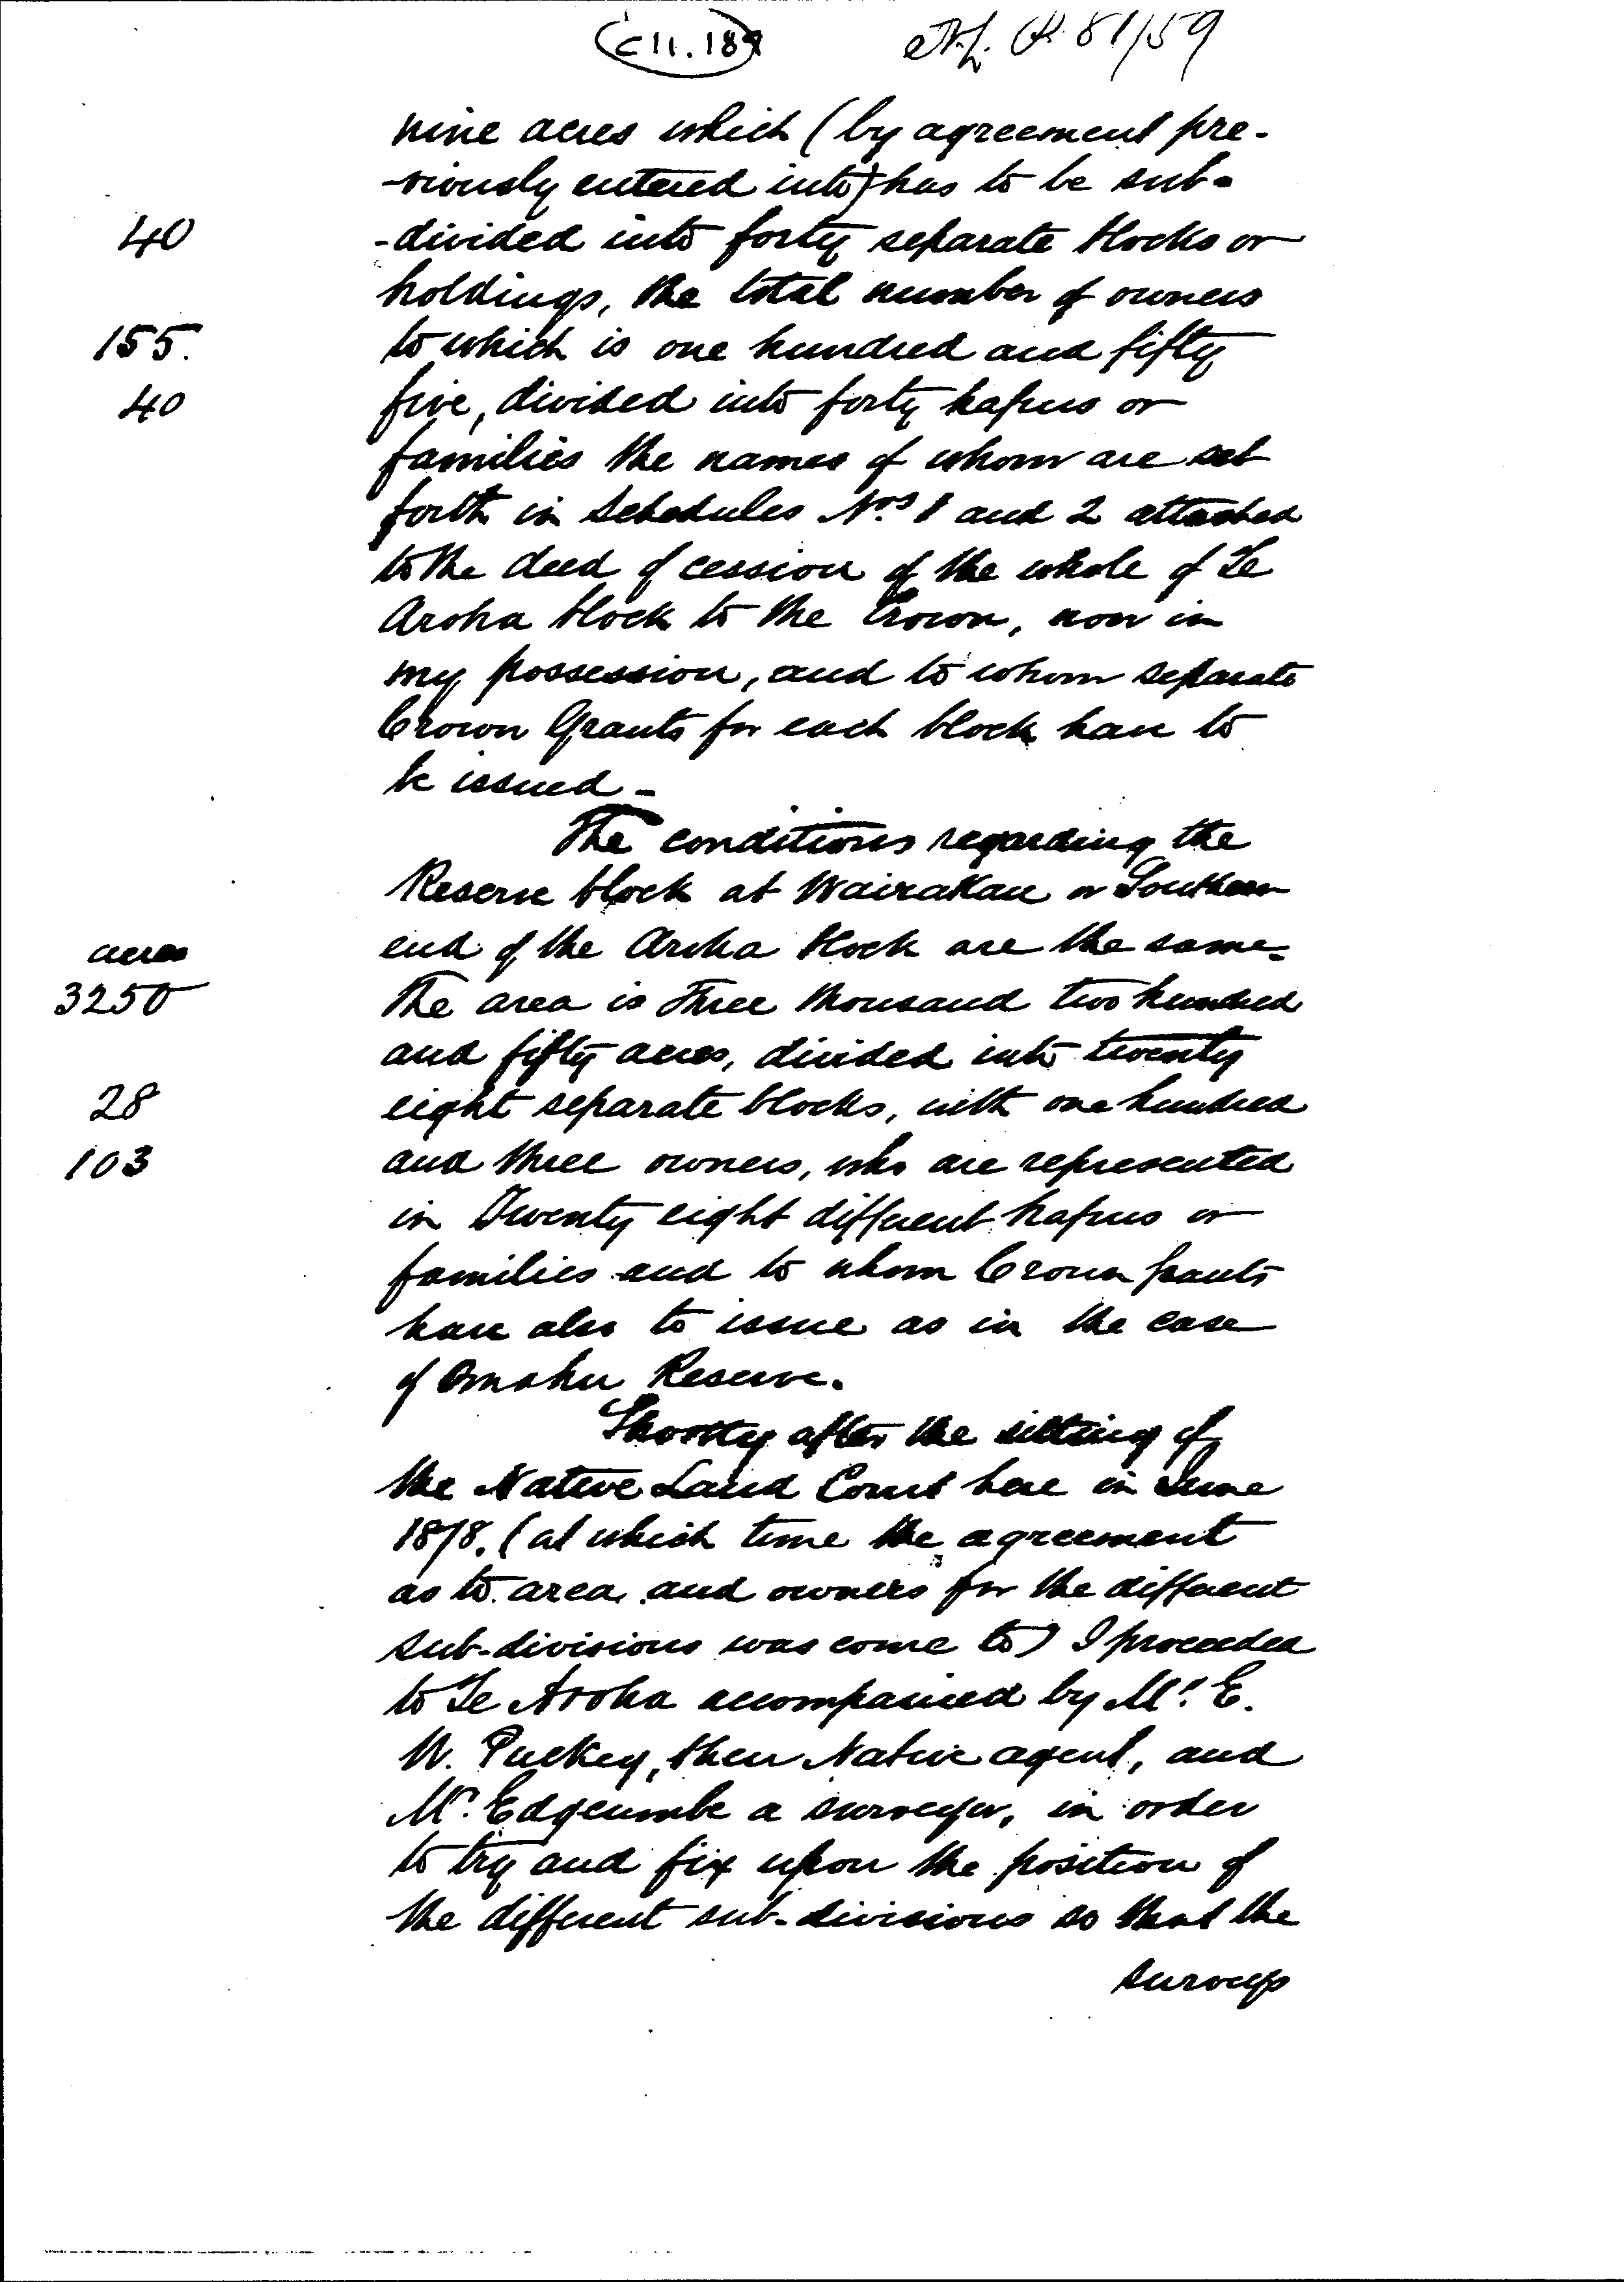 C11.189
N.L.P. 81/59
nine acres which (by agreement pre-
-viously entered into) has to be sub-
40
-divided into forty separate blocks or
holdings, the total number of owners
155.
to which is one hundred and fifty
40
five, divided into forty hapus or
families the names of whom are set
forth in Schedules Nos 1 and 2 attached
to the deed of cession of the whole of Te
Aroha block to the Crown, now in
my possession, and to whom separate
Crown Grants for each block have to
be issued -
The conditions regarding the
Reserve block at Wairakau or Southern
acres
end of the Aroha block are the same.
3250
The area is Three thousand two hundred
and fifty acres, divided into twenty
28
eight separate blocks, with one hundred
103
and three owners, who are represented
in Twenty eight different hapus or
families and to whom Crown Grants
have also to issue as in the case
of Omahu Reserve.
Shortly after the sitting of
the Native Land Court here in June
1878. (at which time the agreement
as to area and owners for the different
sub-divisions was come to) I proceeded
to Te Aroha accompanied by Mr. E.
W. Puckey, then Native agent, and
Mr. Edgcumbe a surveyor, in order
to try and fix upon the position of
the different sub-divisions so that the
surveys